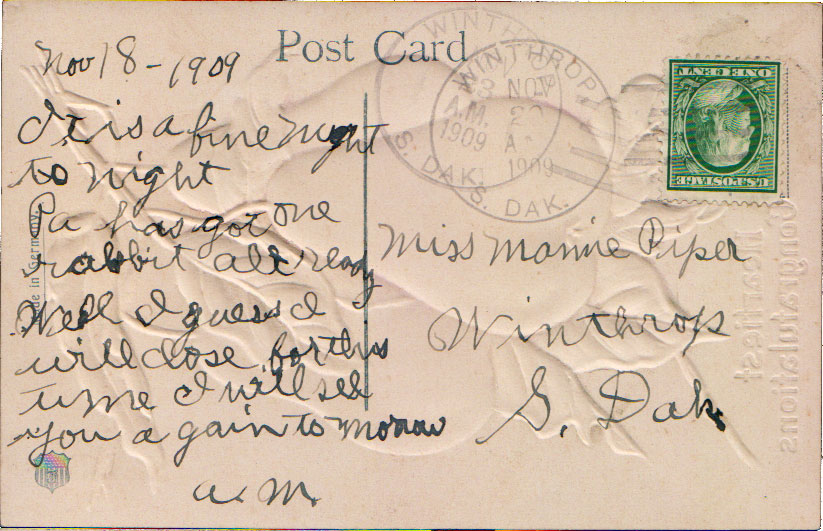 Post Card
Nov 18 - 1909
It is a fine night
to night
Pa has got one
rabbit all ready
Well I guess I
will close for this
time I will see
you again to morow
a. m.
Miss Mamie Piper
Winthrop
S. Dak.
WINTHROP
NOV
A.M.
1909
S. DAK.
WINTHROP
1909
S. DAK.
U.S. POSTAGE
ONE CENT
Made in Germany.
Heartiest
Congratulations